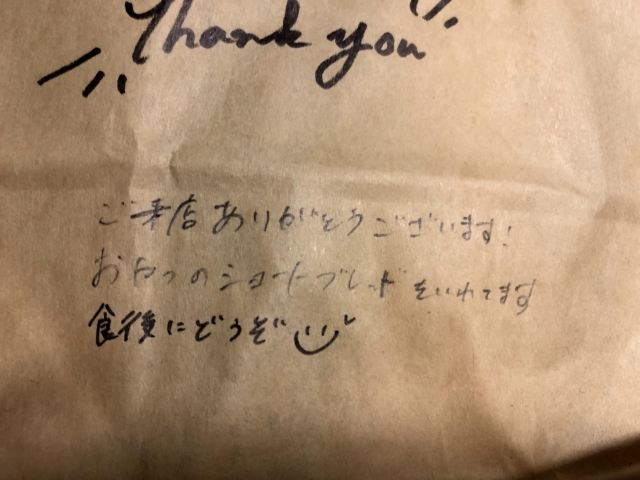 Thank you
ご来店ありがとうございます!
おやつのショートブレッドをいれてます
食後にどうぞ